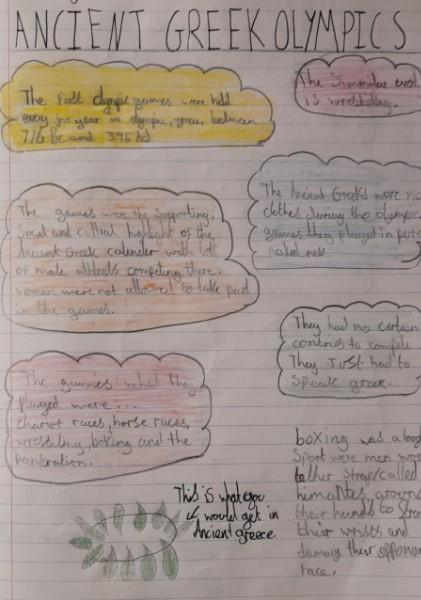 ANCIENT GREEK OLYMPICS
The First Olympic games were held
every four year in olympia, greece, between
776 Bc and 395 Ad
The
is wrestling.
The Ancient Greeks wore no
clothes during the olympic
games they played in pure
naked ness.
The games were the
Social and cultral highlight of the
Ancient Greek calender with lots
of male athletes competing there.
women were not allowed to take part
in the games.
They had no certain
contries to compete
They Just had to
Speak greek.
The games what they
played were...
chariot races, horse races,
wrestling, boxing and the
Pankration.
This is what you
would get in
Ancient greece
boxing was a
Sport were men
lether Straps called
himantes around
their hands to
their wrists and
damage their
Face.